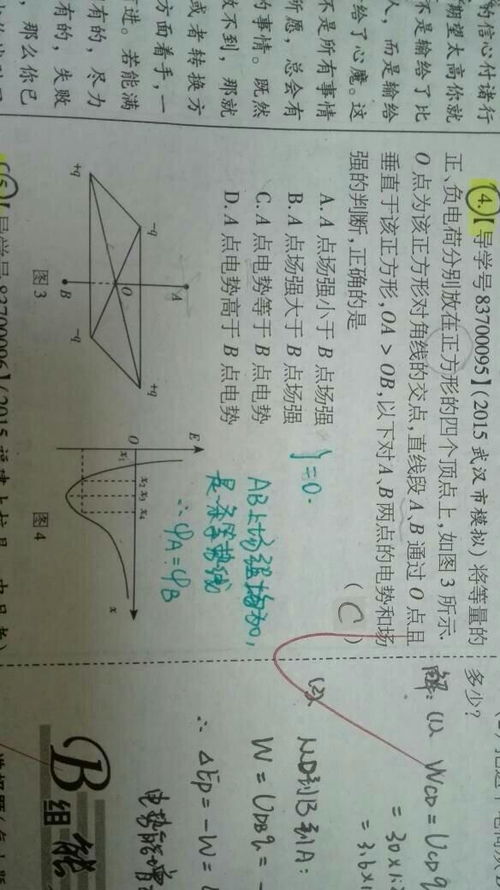 的信心付诸行
期望太高你就
不是输给了比
人，而是输给
给了心魔。这
不是所有事情
所愿，总会有
的事情。既然
做不到，那就
或者转换方
方面着手，一
进。若能满
有的，尽力
有的，失败
，那么你已
4.【导学号 83700095】(2015 武汉市模拟) 将等量的
正、负电荷分别放在正方形的四个顶点上，如图 3 所示.
O 点为该正方形对角线的交点，直线段 A、B 通过 O 点且
垂直于该正方形，OA > OB，以下对 A、B 两点的电势和场
强的判断，正确的是 ( C )
A. A 点场强小于 B 点场强
B. A 点场强大于 B 点场强
C. A 点电势等于 B 点电势
D. A 点电势高于 B 点电势
}=0.
AB上场强均为0,
是条等势线
∴φA=φB
A
-q
+q
O
+q
-q
B
图 3
E
O
x₁
x₂
x₃
x₄
x
图 4
【导学号 83700096】(2015
多少?
解: (1) WCD = UCDq
= 30×1
= 3.6×1
(2)
W = UDBq = -
∴ ΔEp = -W =
电势能增
B
组
能